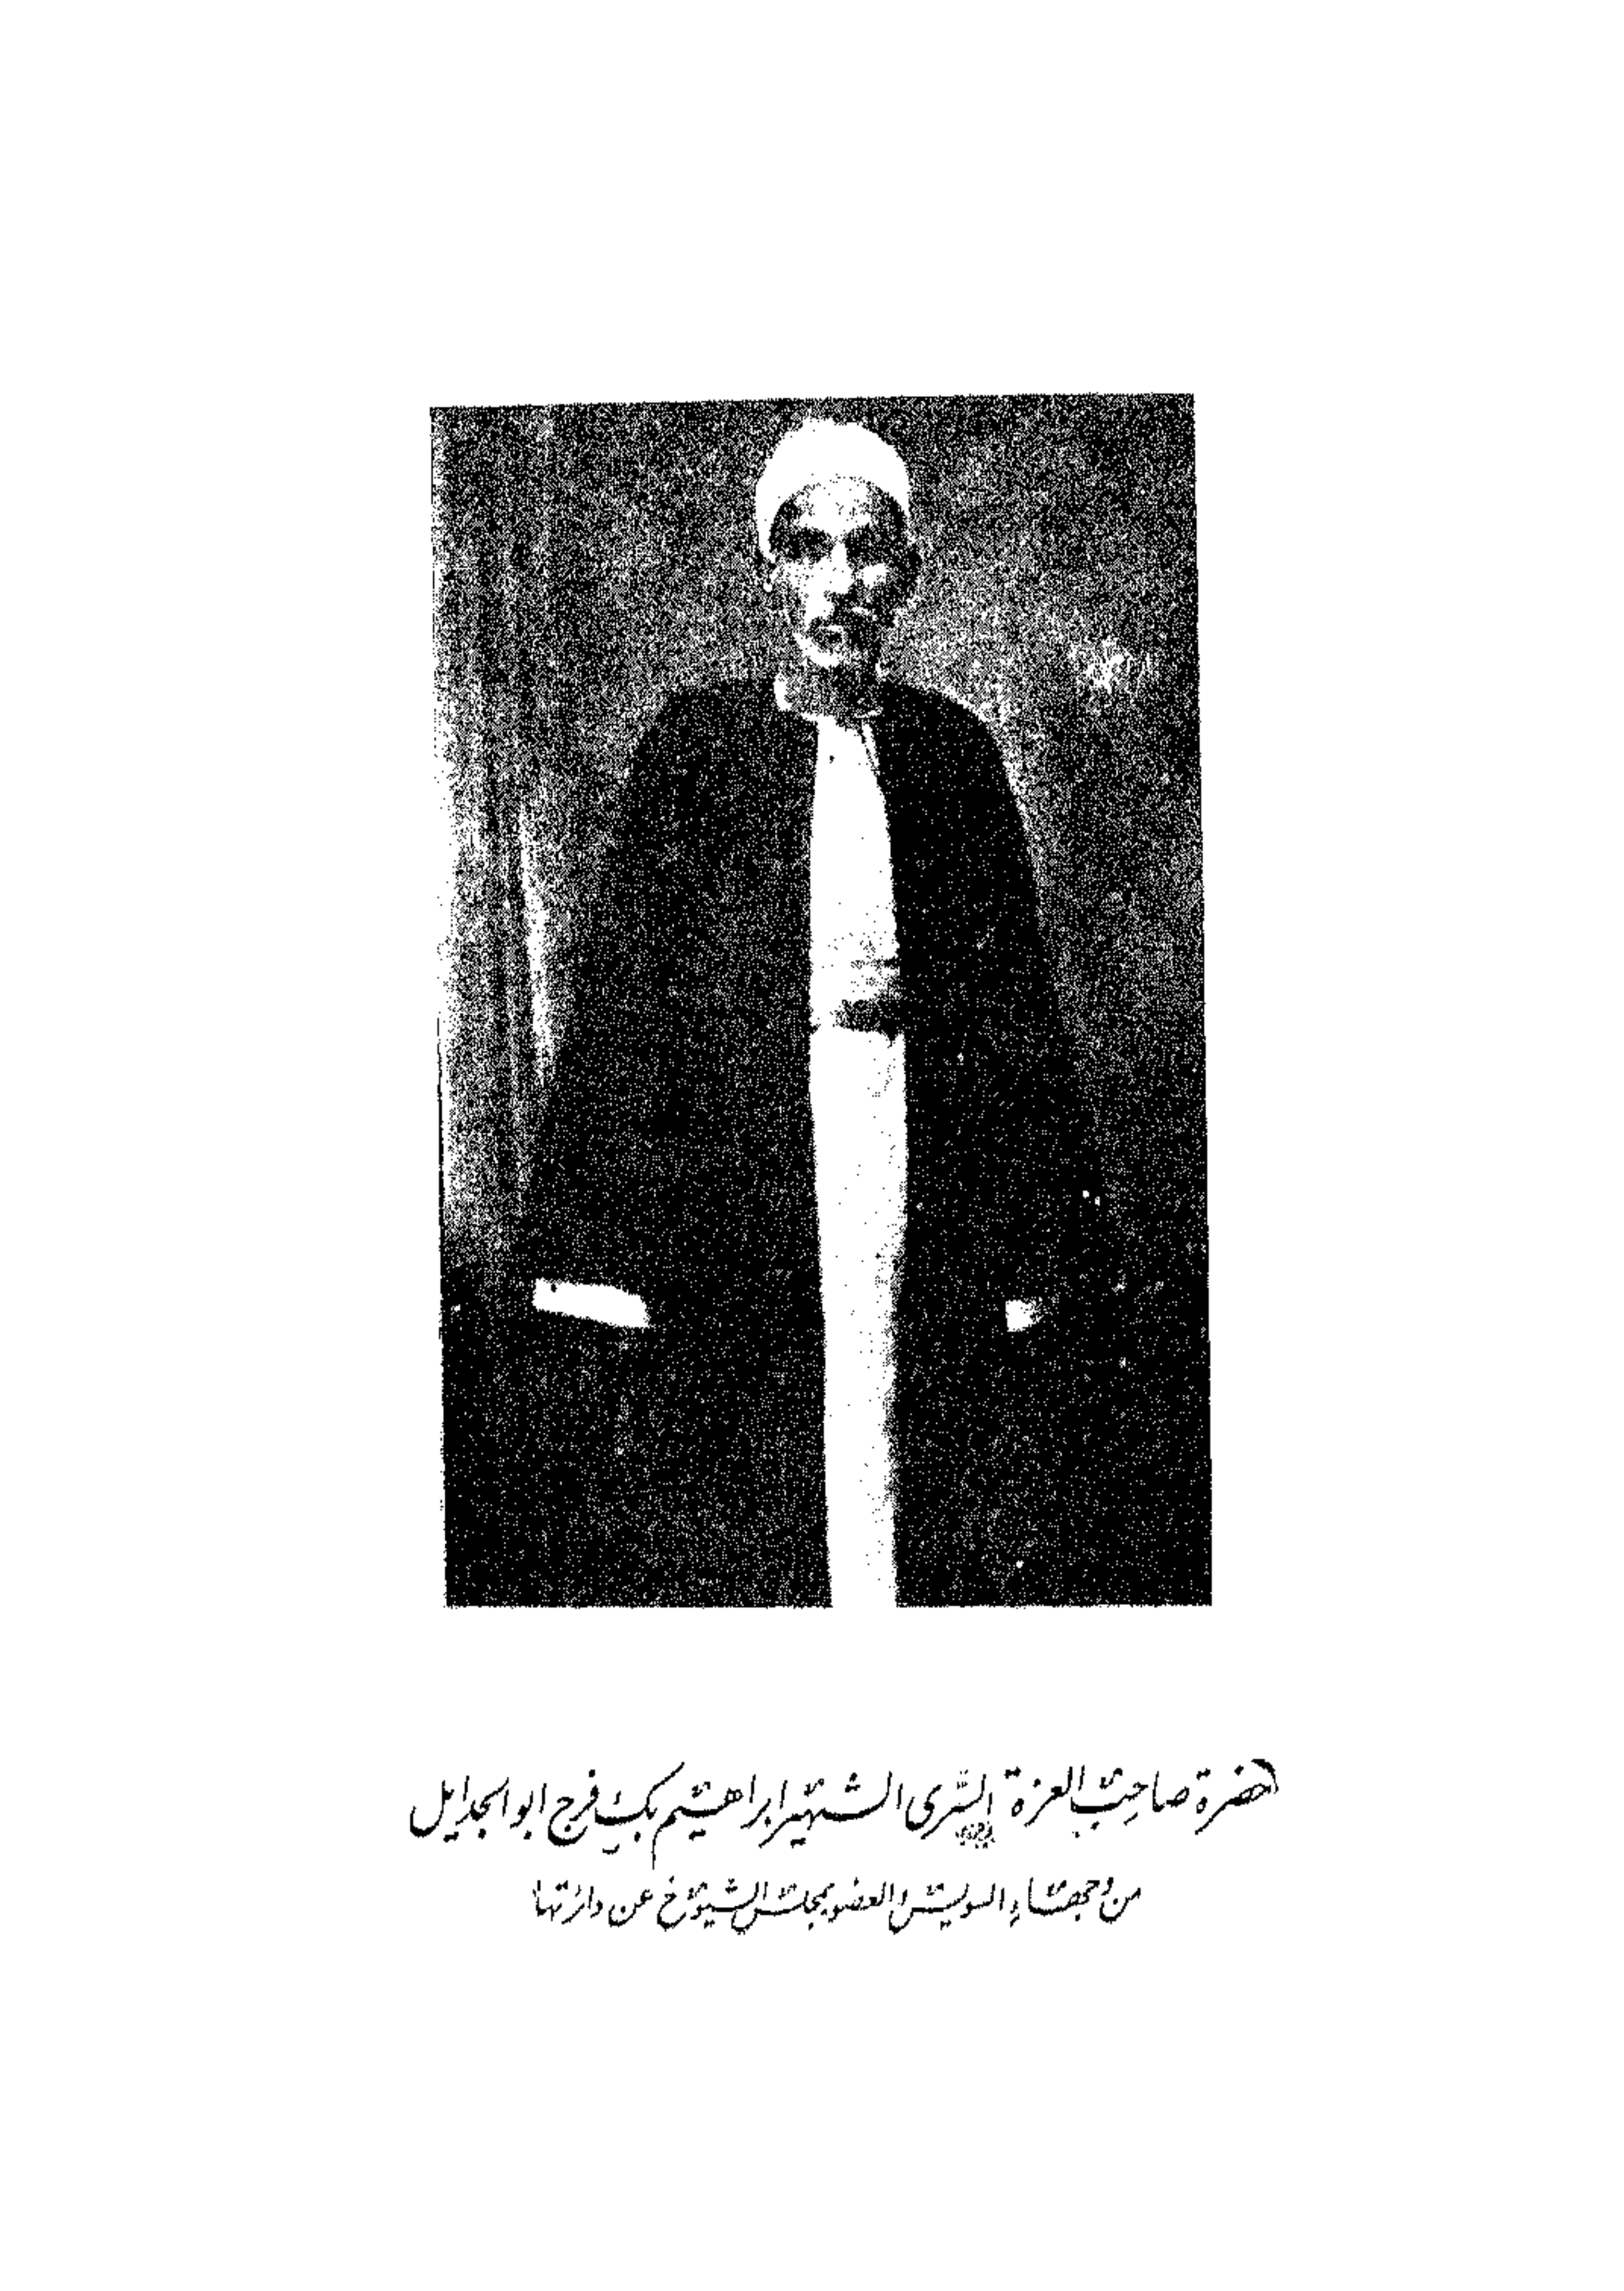 حضرة صاحب العزة السرى الشهير ابراهيم بك فرج ابو الجدايل
من وجهاء السويس والعضو بمجلس الشيوخ عن دائرتها